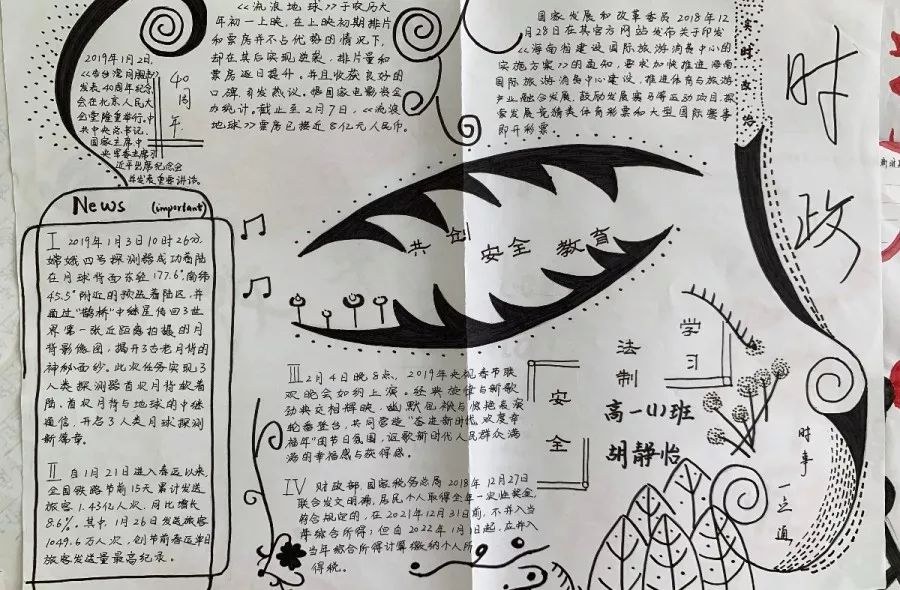 2019年1月2日,
《告台湾同胞书》
发表40周年纪念
会在北京人民大
会堂隆重举行。中
共中央总书记、
国家主席、中
央军委主席习
近平出席纪念会
并发表重要讲话。
40
周
年
《流浪地球》于农历大
年初一上映,在上映初期排片
和票房并不占优势的情况下,
却在其后实现逆袭,排片量和
票房逐日提升。并且收获良好的
口碑,引发热议。据国家电影资金
办统计,截止至2月7日,《流浪
地球》票房已接近8亿元人民币。
国家发展和改革委员2018年12
月28日在其官方网站发布关于印发
《海南省建设国际旅游消费中心的
实施方案》的通知,要求加快推进海南
国际旅游消费中心建设,推进体育与旅游
产业融合发展,鼓励发展赛马等运动项目,探
索发展竞猜类体育彩票和大型国际赛事
即开彩票。
实时政治
时政
News (important)
I 2019年1月3日10时26分,
嫦娥四号探测器成功着陆
在月球背面东经177.6°、南纬
45.5°附近的预选着陆区,并
通过“鹊桥”中继星传回了世
界第一张近距离拍摄的月
背影像图,揭开了古老月背的
神秘面纱。此次任务实现了
人类探测器首次月背软着
陆、首次月背与地球的中继
通信,开启了人类月球探测
新篇章。
II 自1月21日进入春运以来,
全国铁路节前15天累计发送
旅客1.43亿人次,同比增长
8.6%。其中,1月26日发送旅客
1049.6万人次,创节前春运单日
旅客发送量最高纪录。
共创 安全 教育
III 2月4日晚8点,2019年央视春节联
欢晚会如约上演。经典旋律与新歌
劲曲交相辉映,幽默包袱与惊艳表演
轮番登台,共同营造“奋进新时代,欢度幸
福年”的节日氛围,讴歌新时代人民群众满
满的幸福感与获得感。
IV 财政部、国家税务总局2018年12月27日
联合发文明确,居民个人取得全年一次性奖金,
符合规定的,在2021年12月31日前,不并入当
年综合所得;但自2022年1月1日起,应并入
当年综合所得计算缴纳个人所
得税。
安全
法制
学习
高一(1)班
胡静怡
时事一点通